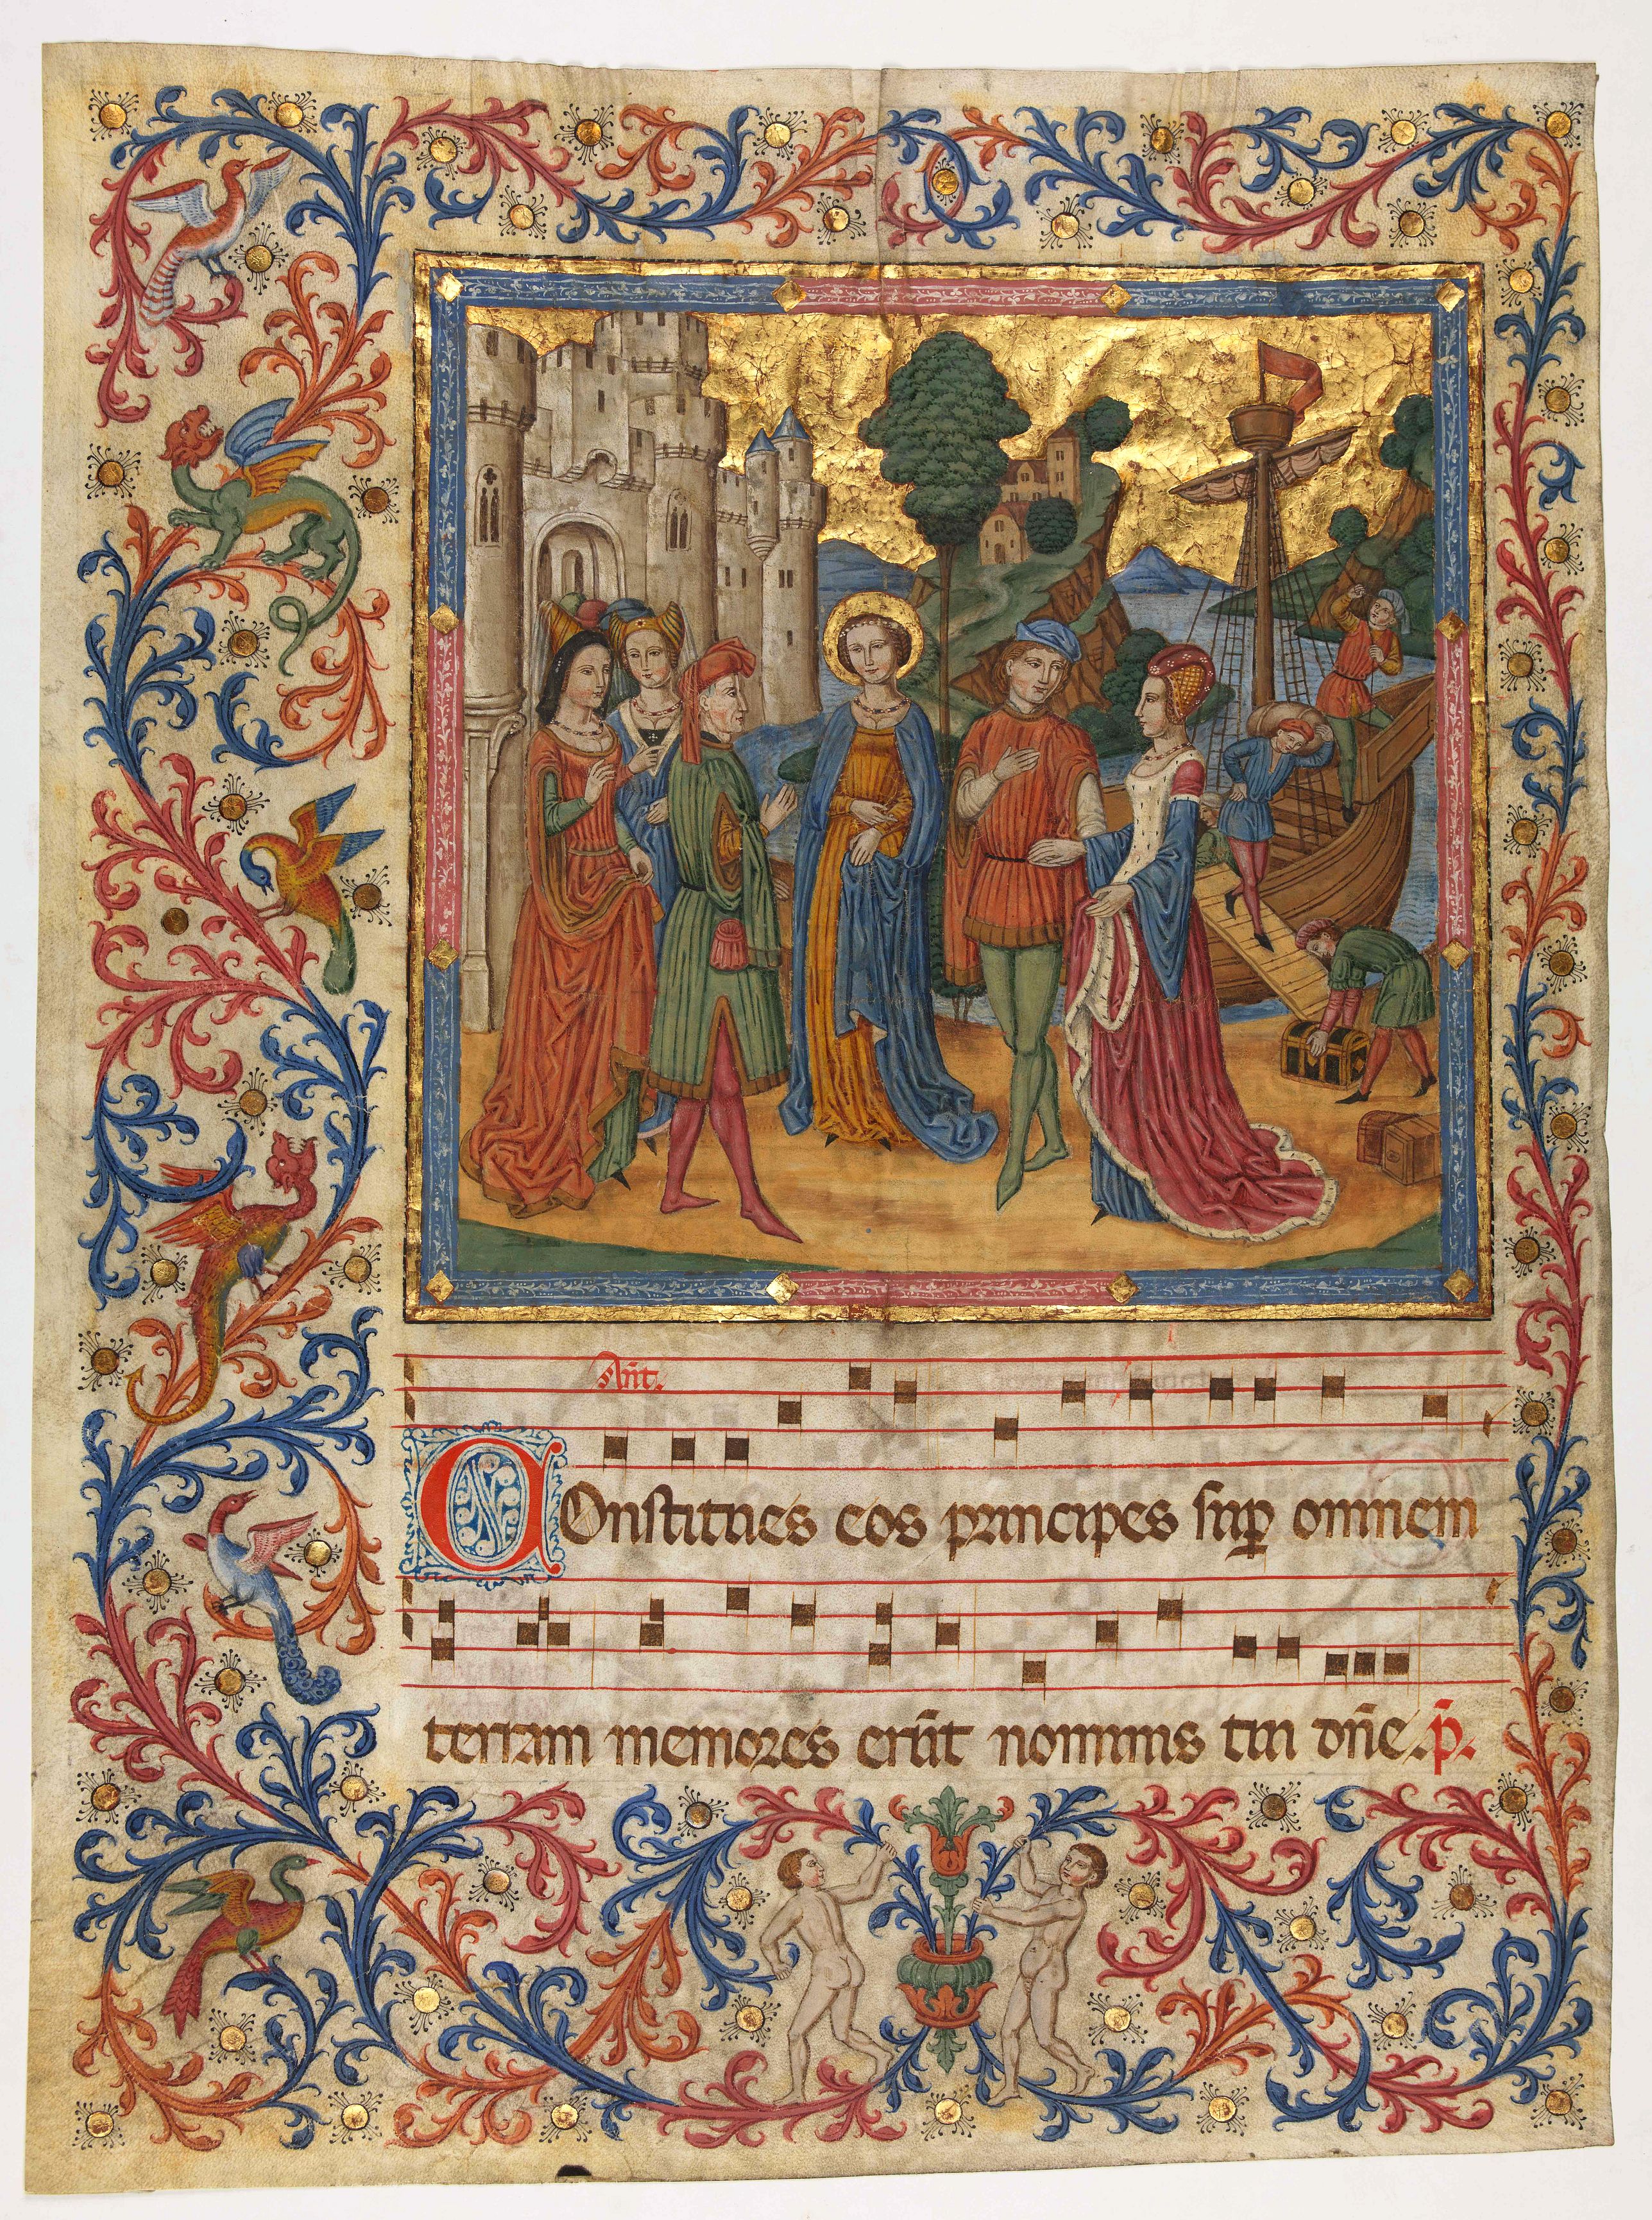 Añt.
COnstitues eos principes sup omnem
terram memores erūt nominis tui dñe. p̄.